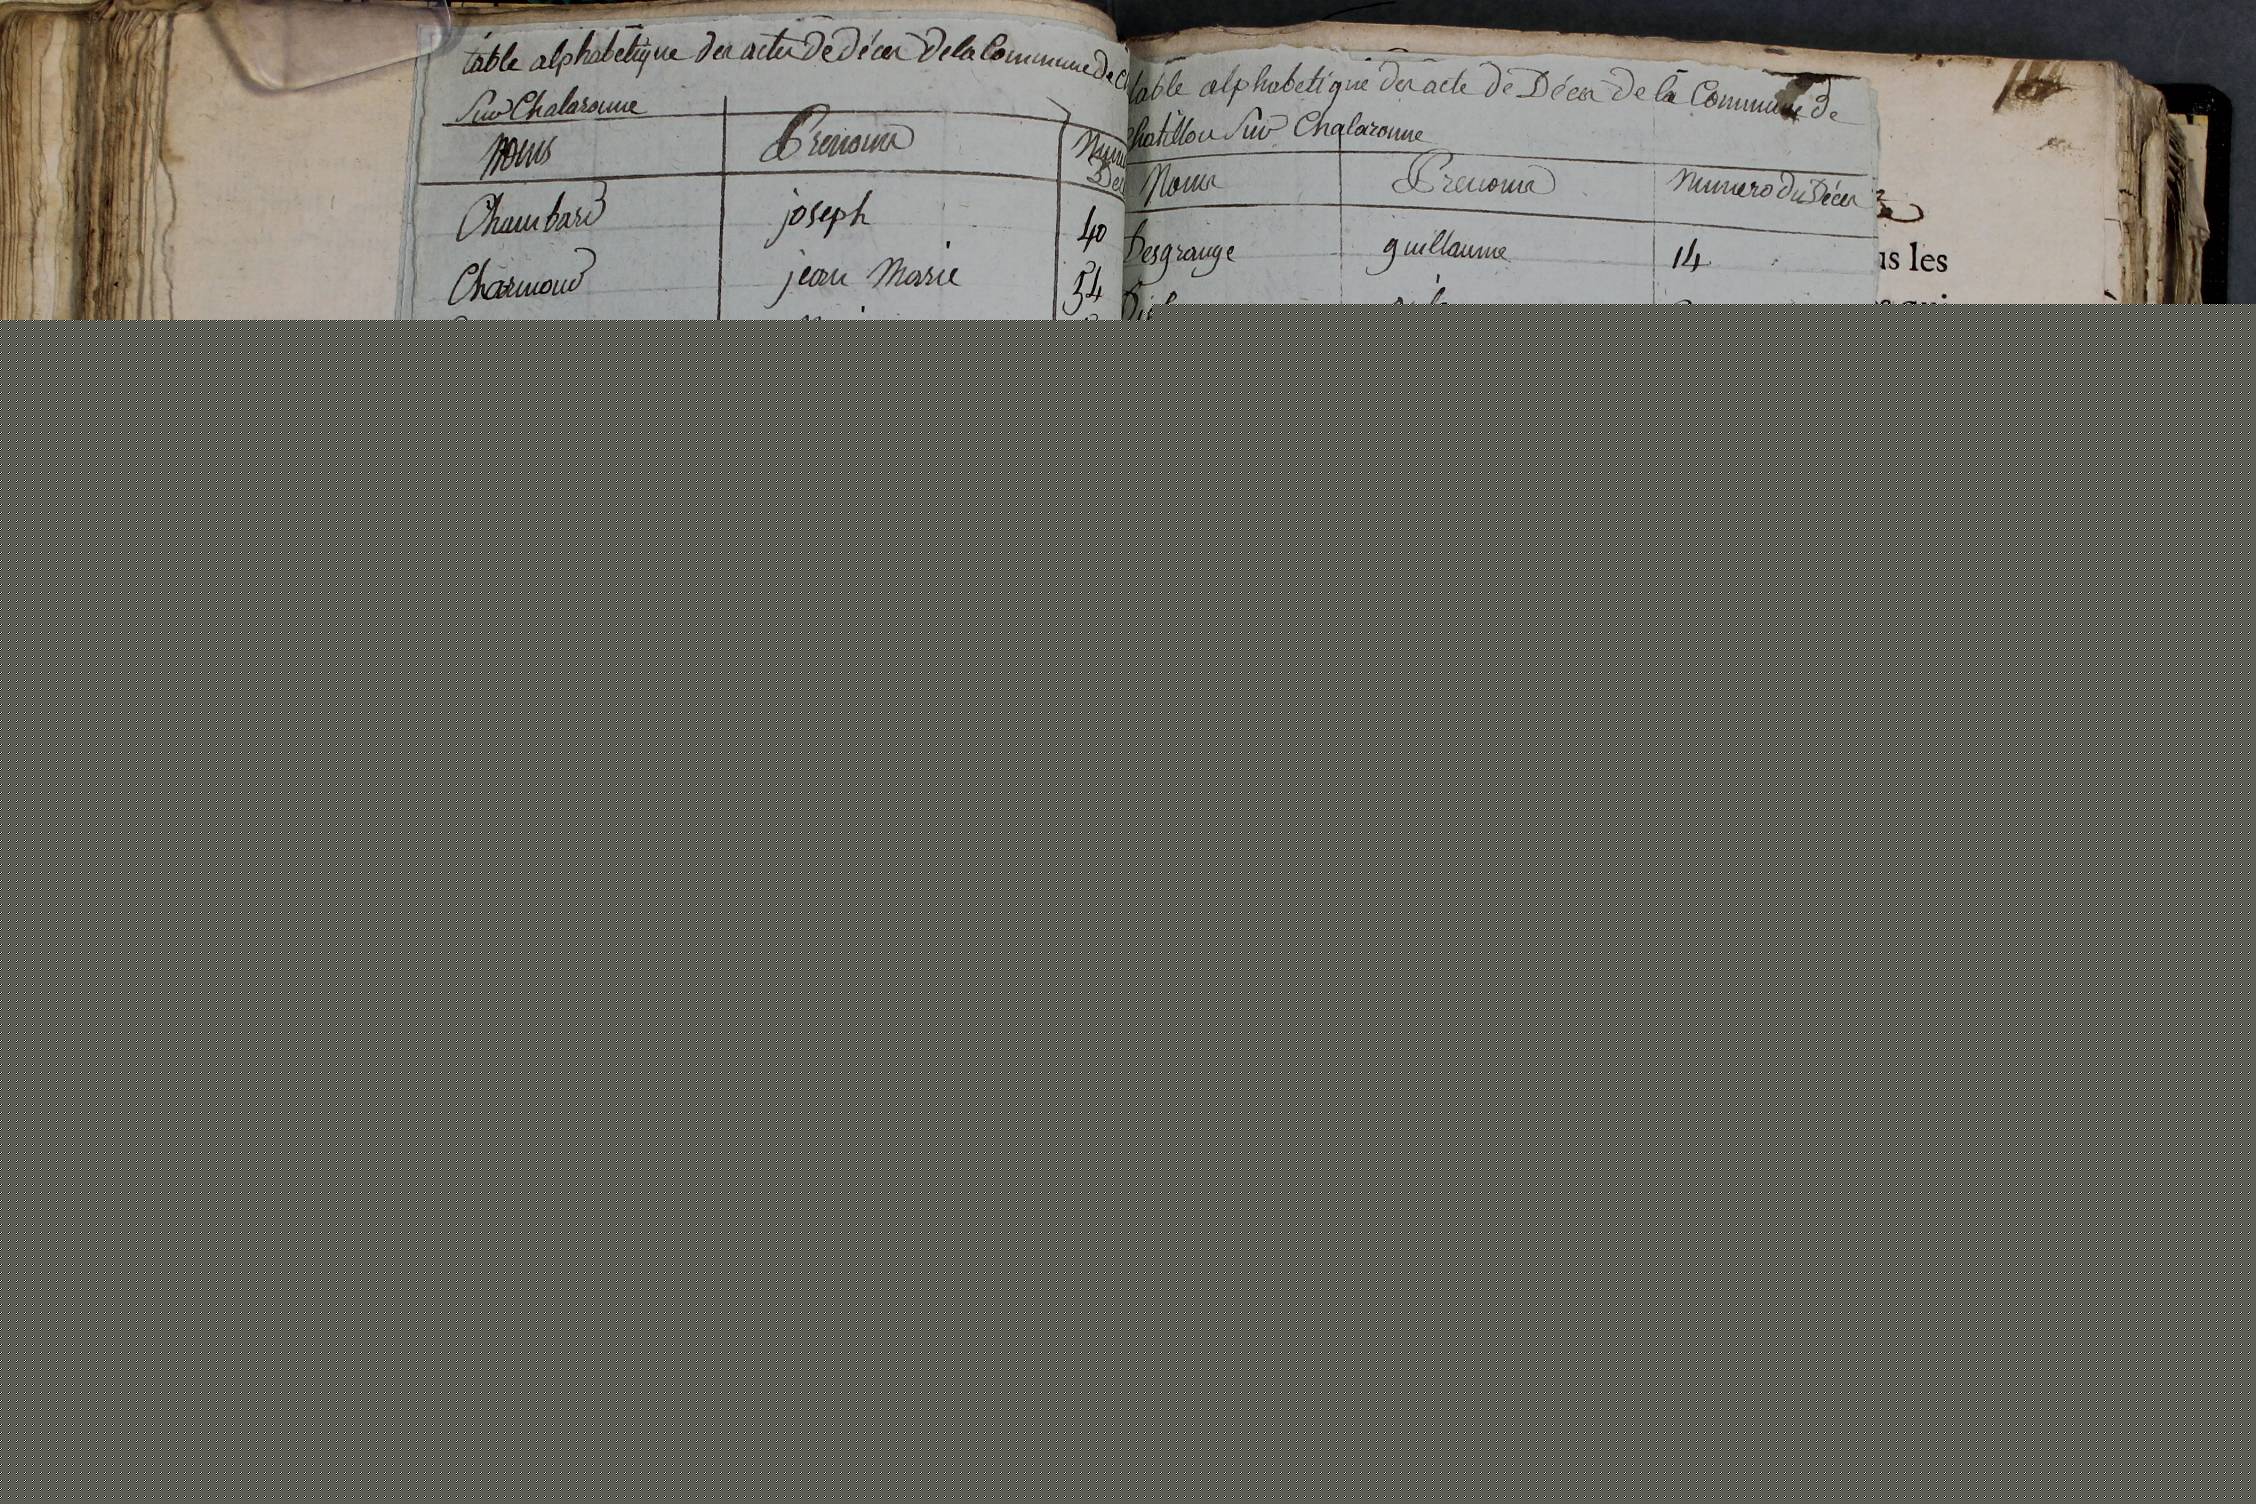 table alphabetique des actes de décès de la Commune de C
Sur Chalaronne
Noms Prenoms Num
Dec
Chambard joseph 40
Charmond jean Marie 54
table alphabetique des acte de Décès de la Commune de
Chatillon Sur Chalaronne
Noms Prenoms Numero du Décès
Desgrange guillaume 14
us les